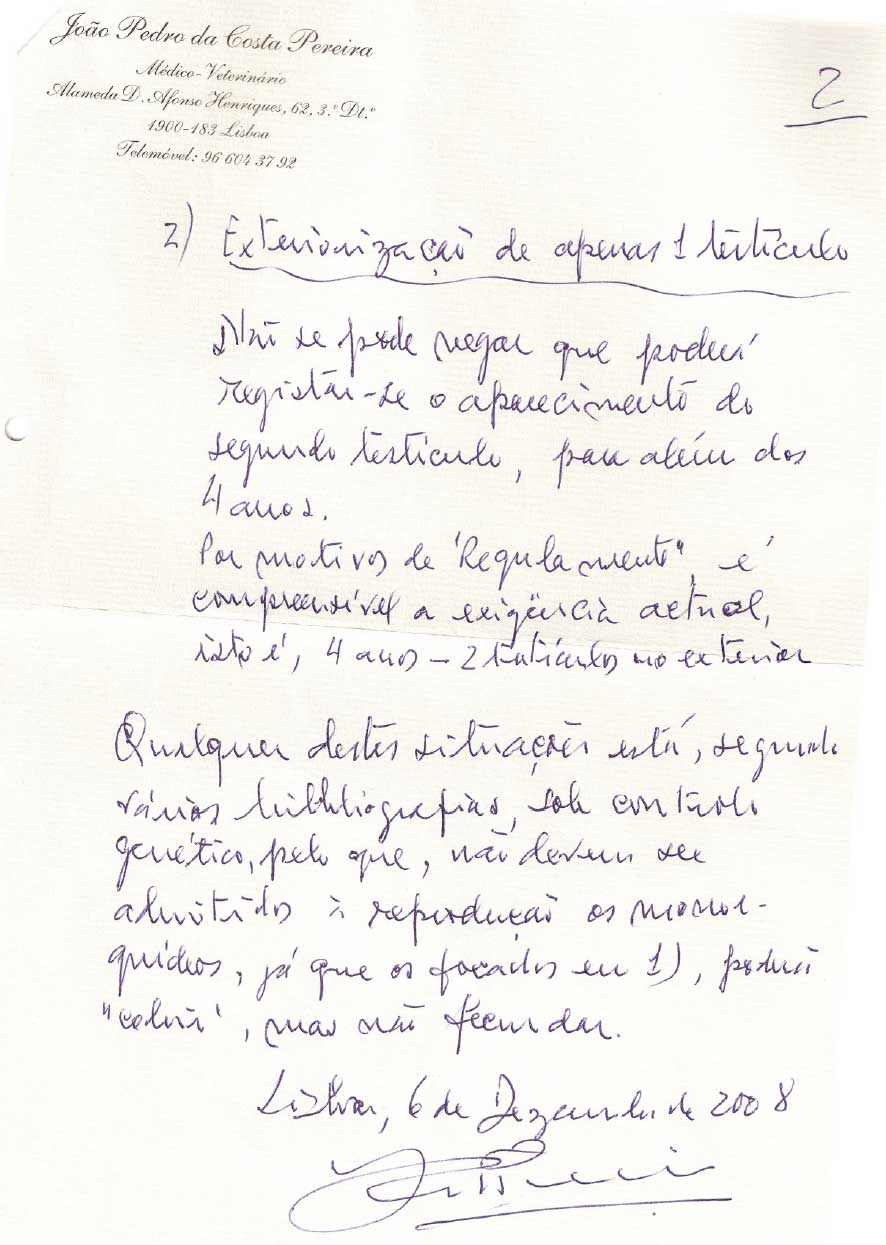 João Pedro da Costa Pereira
Médico-Veterinário
Alameda D. Afonso Henriques, 62, 3.º Dt.º
1900-183 Lisboa
Telemóvel: 96 604 37 92
2
2) Exteriorização de apenas 1 testículo
Não se pode negar que poderá
registar-se o aparecimento do
segundo testículo, para além dos
4 anos.
Por motivos de "Regulamento", é
compreensível a exigência actual,
isto é, 4 anos – 2 testículos no exterior
Qualquer destas situações está, segundo
várias bibliografias, sob controlo
genético, pelo que, não devem ser
admitidos à reprodução os monor-
quídeos, já que os focados em 1), poderão
"cobrir", mas não fecundar.
Lisboa, 6 de Dezembro de 2008